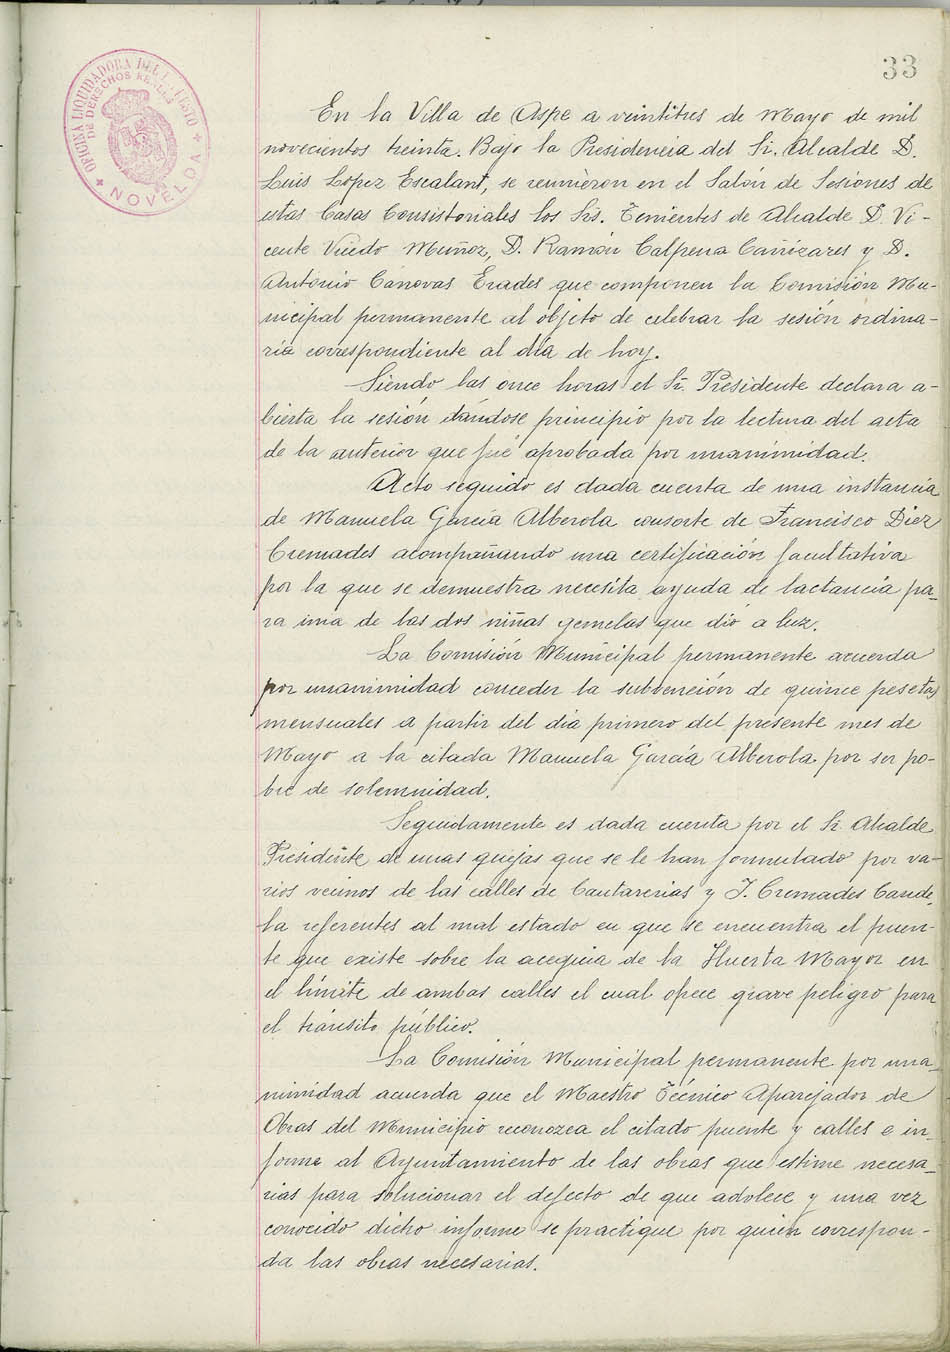 33
OFICINA LIQUIDADORA DEL
DE DERECHOS REALES
NOVELDA
En la Villa de Aspe a veintitres de Mayo de mil
novecientos treinta. Bajo la Presidencia del Sr. Alcalde D.
Luis López Escalant, se reunieron en el Salón de Sesiones de
estas Casas Consistoriales los Srs. Tenientes de Alcalde D. Vi-
cente Vicedo Muñoz, D. Ramón Calpena Cañizares y D.
Antonio Cánovas Erades que componen la Comisión Mu-
nicipal permanente al objeto de celebrar la sesión ordina-
ria correspondiente al día de hoy.
Siendo las once horas el Sr. Presidente declara a-
bierta la sesión dándose principio por la lectura del acta
de la anterior que fué aprobada por unanimidad.
Acto seguido es dada cuenta de una instancia
de Manuela García Alberola consorte de Francisco Diez
Cremades acompañando una certificación facultativa
por la que se demuestra necesita ayuda de lactancia pa-
ra una de las dos niñas gemelas que dió a luz.
La Comisión Municipal permanente acuerda
por unanimidad conceder la subvención de quince pesetas
mensuales a partir del dia primero del presente mes de
Mayo a la citada Manuela García Alberola por ser po-
bre de solemnidad.
Seguidamente es dada cuenta por el Sr. Alcalde
Presidente de unas quejas que se le han formulado por va-
rios vecinos de las calles de Cantarerias y J. Cremades Cande-
la referentes al mal estado en que se encuentra el puen-
te que existe sobre la acequia de la Huerta Mayor en
el límite de ambas calles el cual opece grave peligro para
el tránsito público.
La Comisión Municipal permanente por una-
nimidad acuerda que el Maestro Técnico Aparejador de
Obras del Municipio reconozca el citado puente y calles e in-
forme al Ayuntamiento de las obras que estime necesa-
rias para solucionar el defecto de que adolece y una vez
conocido dicho informe se practique por quien correspon-
da las obras necesarias.